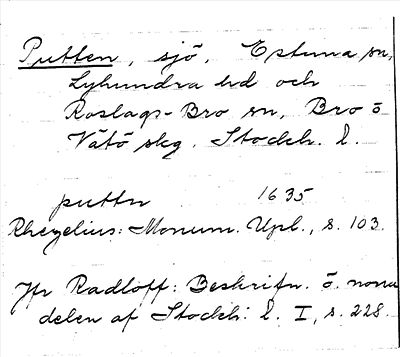 Putten, sjö, Estuna sn,
Lyhundra hd och
Roslags-Bro sn, Bro ö
Vätö skg. Stockh. l.
puttn 1635
Rhezelius: Monum. Upl., s. 103.
Jfr Radloff: Beskrifn. ö. norra
delen af Stockh: l. I, s. 228.